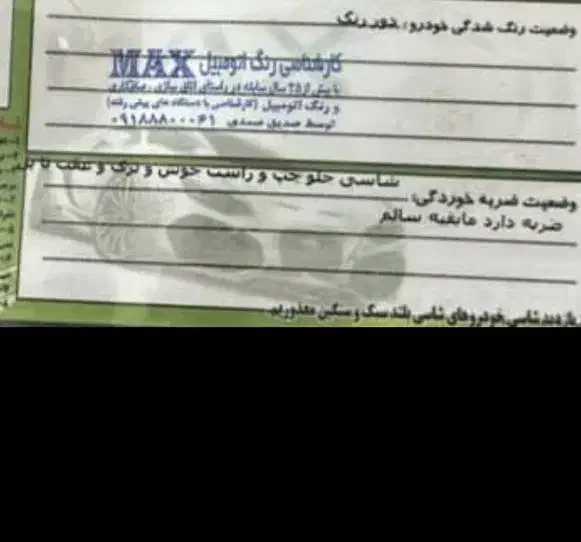 وضعیت رنگ شدگی خودرو: دور رنگ
کارشناسی رنگ اتومبیل MAX
با بیش از ۲۵ سال سابقه در راستای اتاق سازی، صافکاری
و رنگ اتومبیل (کارشناسی با دستگاه های پیش رفته)
توسط صدیق صمدی ۰۹۱۸۸۸۰۰۰۶۱
شاسی جلو چپ و راست جوش و ترک و عقب تا
وضعیت ضربه خوردگی:
ضربه دارد مابقیه سالم
بازدید شاسی خودروهای شاسی بلند سبک و سنگین معذوریم